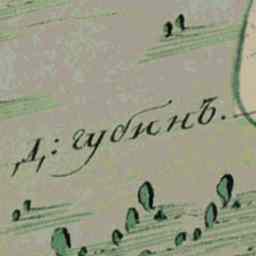 Д: губинъ.